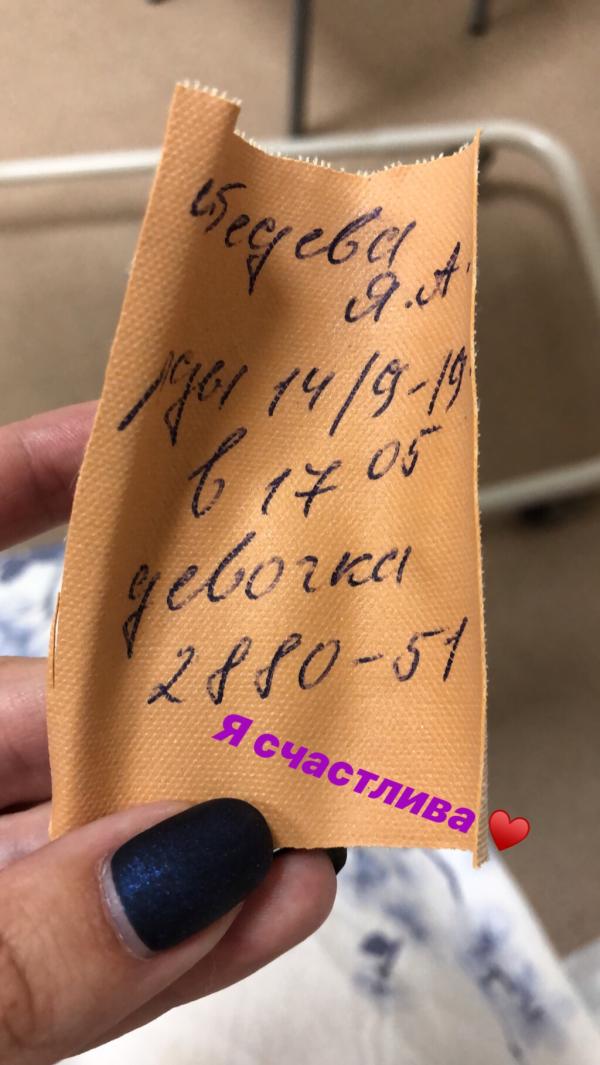 Я.А.
Рды 14/9-19
в 17 05
девочка
2880-51
Я счастлива ❤️